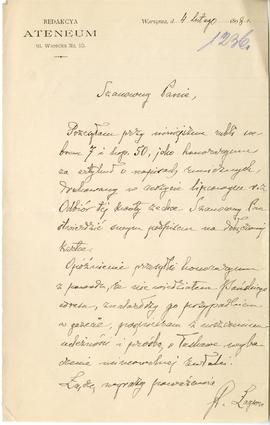 REDAKCYA
ATENEUM
ul. Warecka No. 10.
Warszawa, d. 4 lutego 1898 r.
1236.
Szanowny Panie,
Przesyłam przy niniejszem rubli
7 i kop. 50, jako honoraryum
za artykuł o napisach runicznych,
drukowany w zeszycie lipcowym r.z.
Odbiór tej kwoty zechce Szanowny Pan
stwierdzić swym podpisem na dołączonej
kartce.
Opóźnienie przesyłki honoraryum
z powodu, że nie wiedziałem Pańskiego
adresu, znalazłszy go przypadkiem
w gazecie, pośpieszam z uiszczeniem
należności i prośbą o łaskawe
zwłoki.
Łączę wyrazy poważania